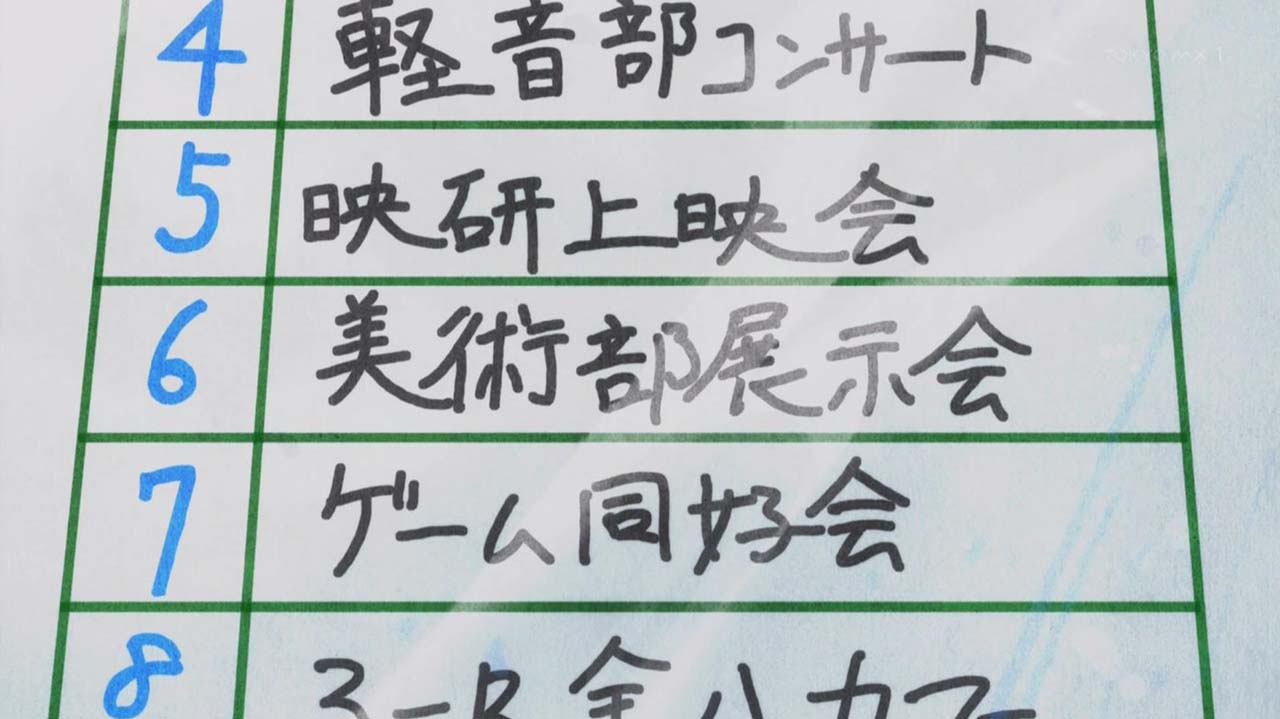 4 軽音部コンサート
5 映研上映会
6 美術部展示会
7 ゲーム同好会
8 3-B 金八カフェ